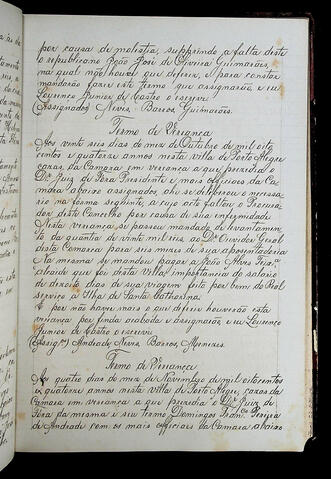 por causa de molestia, supprindo a falta deste
o republicano João José de Oliveira Guimarães,
na qual não houve que deferir, e para constar
mandarão fazer este termo que assignarão e eu
Lourenço Junior de Castro o escrevi
Assignados Neves, Barros, Guimarães.
Termo de Vereança
Aos vinte seis dias do mez de Outubro de mil oito
centos e quatorze annos nesta villa de Porto Alegre
cazas da Camara em vereança a que prezedio o
Dr Juiz de Fóra Presidente e mais officiaes da Ca
mara abaixo assignados, ahi se deliberou o necessa
rio na forma seguinte, a cujo acto faltou o Procura
dor deste Concelho por causa de sua enfermidade
Nesta vereança se passou mandado de levantamen
to da quantia de vinte mil reis ao Dr Ouvidor Geral
desta Comarca para seis mezes de sua aposentadoria
Na mesma se mandou pagar a João Alves
alcaide que foi desta Villa, importancia do salario
de dezoito dias de sua viagem feita por bem do Real
serviço a Ilha de Santa Catharina
E por não haver mais o que deferir houverão esta
vereança por finda acabada e assignarão e eu Lourenço
Junior de Castro o escrevi
(Assig.os) Andrade, Neves, Barros, Menezes.
Termo de Vereança
Aos quatro dias do mez de Novembro de mil oitocentos
e quatorze annos nesta villa de Porto Alegre, cazas da
Camara em vereança a que prezedio o Dr Juiz de
Fóra da mesma e seu termo Domingos Fran.co Pereira
de Andrade com os mais officiaes da Camara abaixo